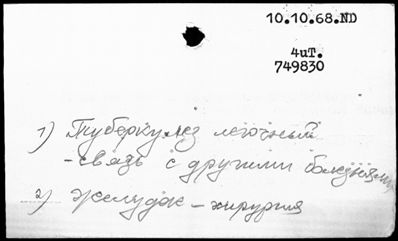 10.10.68.ND
4иТ.
749830
1) Туберкулез легочный
- связь с другими болезнями
2) Желудок - хирургия